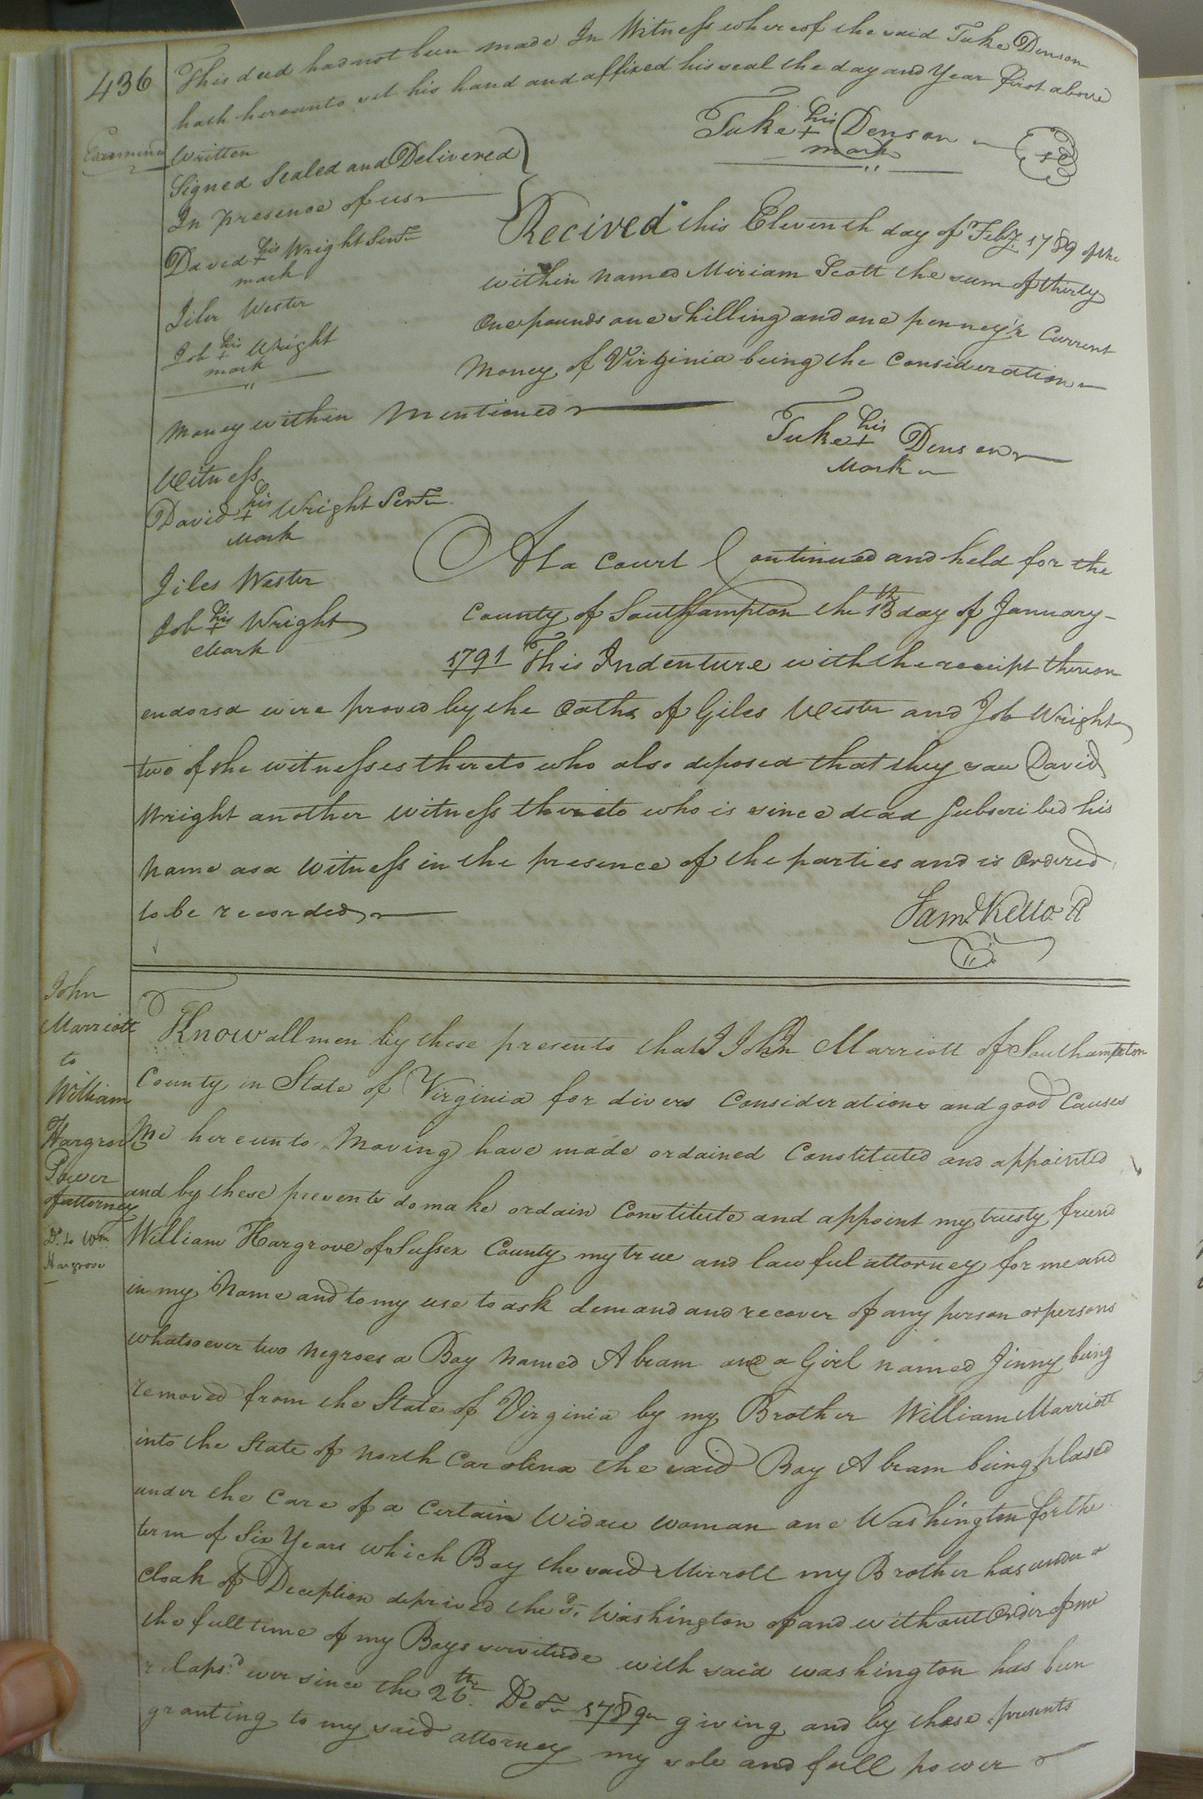 436
This deed had not been made In Witness whereof the said Tuke Denson
hath hereunto set his hand and affixed his seal the day and Year first above
Examined
Written
Tuke his + mark Denson
Signed Sealed and Delivered
In presence of us
David his + mark Wright Senr
Jiles Wester
Job his + mark Wright
Recived this Eleventh day of Feby 1789 of the
within named Miriam Scott the sum of thirty
one pounds one shilling and one penney's Current
Money of Virginia being the Consideration
Money within Mentioned
Tuke his + Mark Denson
Witness
David his + Mark Wright Senr
Jiles Wester
Job his + Mark Wright
At a Court Continued and held for the
County of Southampton the 13th day of January
1791 This Indenture with the receipt thereon
endorsd were proved by the Oaths of Giles Wester and Job Wright
two of the witnesses thereto who also deposed that they saw David
Wright another witness thereto who is since dead Subscribed his
Name as a Witness in the presence of the parties and is Ordered
to be recorded
Saml Kello
John
Marriott
to
William
Hargrov
Power
of attorney
D. to Wm
Hargrove
Know all men by these presents that I John Marriott of Southampton
County in State of Virginia for divers Considerations and good Causes
Me hereunto Moving have made ordained Constituted and appointed
and by these presents do make ordain Constitute and appoint my trusty friend
William Hargrove of Sussex County my true and lawful attorney for me and
in my Name and to my use to ask demand and recover of any person or persons
whatsoever two negroes a Boy Named Abram and a Girl named Jinny being
removed from the State of Virginia by my Brother William Marriott
into the State of North Carolina the said Boy Abram being plased
under the Care of a Certain Widow woman one Washington for the
term of Six Years which Boy the said Mirrott my Brother has under a
cloak of Deception deprived the sd. Washington of and without Order of me
the full time of my Boys servitude with said washington has been
elaps.d ever since the 26th Decr 1789 giving and by these presents
granting to my said attorney my sole and full power